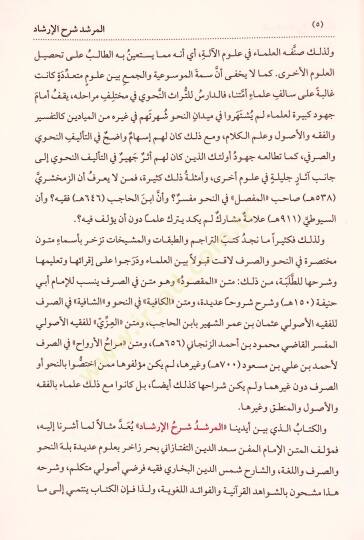 (٥) المرشد شرح الإرشاد
ولذلك صنَّفه العلماء في علوم الآلة، أي أنه مما يستعينُ به الطالبُ على تحصيل
العلوم الأخرى. كما لا يخفى أنَّ سمةَ الموسوعية والجمع بين علومٍ متعدِّدةٍ كانت
غالبةً على سالفِ علماءِ أُمَّتنا، فالدارسُ للتُّراث النَّحوي في مختلِفِ مراحله، يقفُ أمامَ
جهود كبيرة لعلماء لم يُشتَهَروا في ميدان النحو شُهرتَهم في غيره من الميادين كالتفسير
والفقه والأصول وعلم الكلام، ومع ذلك كان لهم إسهامٌ واضحٌ في التأليف النحوي
والصرفي، كما تطالعه جهودُ أولئك الذين كان لهم أثرٌ جَهيرٌ في التأليف النحوي إلى
جانب آثارٍ جليلةٍ في علومٍ أخرى، وأمثلةُ ذلك كثيرة، فمن لا يعرفُ أن الزمخشريَّ
(٥٣٨هـ) صاحب «المفصل» في النحو مفسرٌ؟ وأنَّ ابنَ الحاجب (٦٤٦هـ) فقيه؟ وأن
السيوطيَّ (٩١١هـ) علامةٌ مشاركٌ لم يكد يترك علمًا دون أن يؤلف فيه؟.
ولذلك فكثيرًا ما نجدُ كتبَ التراجم والطبقات والمشيخات تزخر بأسماءِ متونٍ
مختصرة في النحو والصرف لاقت قبولًا بين العلماء ودَرَجوا على إقرائها وتعليمها
وشرحها للطَّلَبَة، من ذلك: متنُ «المقصود» وهو متن في الصرف ينسب للإمام أبي
حنيفة (١٥٠هـ) وشُرح شروحًا عديدة، ومتن «الكافية» في النحو و«الشافية» في الصرف
للفقيه الأصولي عثمان بن عمر الشهير بابن الحاجب، ومتن «العِزِّيّ» للفقيه الأصولي
المفسر القاضي محمود بن أحمد الزنجاني (٦٥٦هـ)، ومتن «مراحُ الأرواح» في الصرف
لأحمد بن علي بن مسعود (٧٠٠هـ) وغيرها، لم يكن مؤلفوها ممن اختصُّوا بالنحو أو
الصرف دون غيرهما ولم يكن شراحها كذلك أيضًا، بل كانوا مع ذلك علماء بالفقه
والأصول والمنطق وغيرها.
والكتابُ الذي بين أيدينا «المرشدُ شرحُ الإرشاد» يُعَدُّ مثالًا لما أشرنا إليه،
فمؤلف المتن الإمام المفن سعد الدين التفتازاني بحر زاخر بعلوم عديدة بله النحو
والصرف واللغة، والشارح شمس الدين البخاري فقيه فرضي أصولي متكلم، وشرحه
هذا مشحون بالشواهد القرآنية والفوائد اللغوية، ولذا فإن الكتاب ينتمي إلى ما